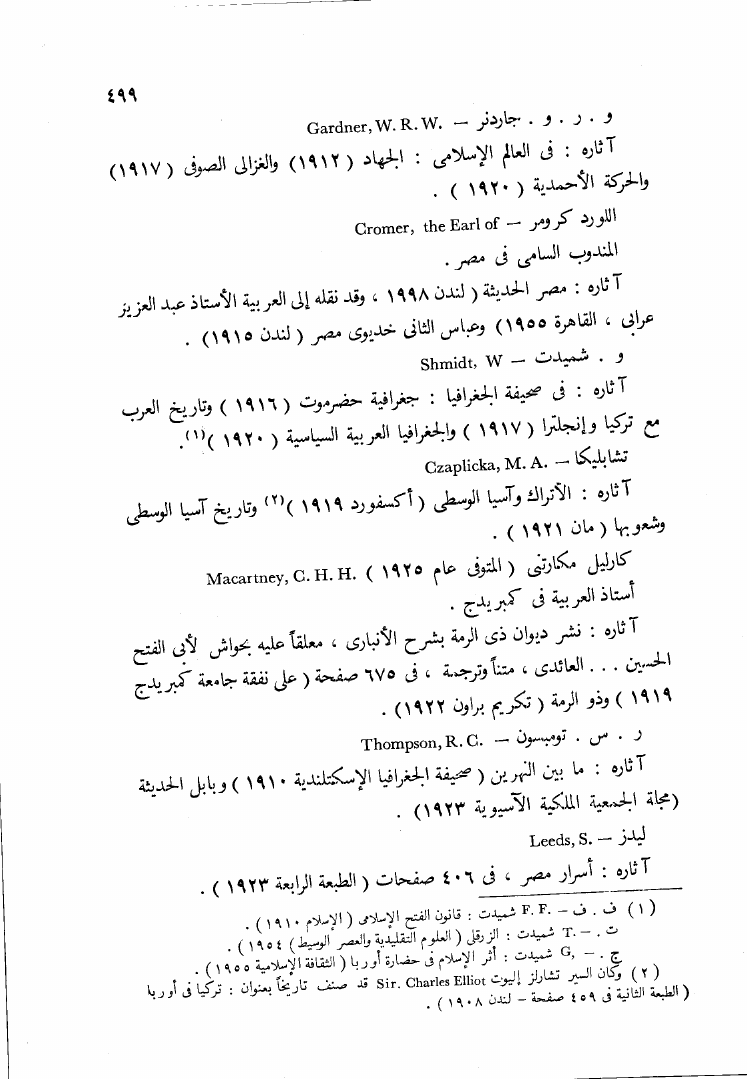 ٤٩٩
و . ر . و . جاردنر — Gardner, W. R. W.
آثاره : فى العالم الإسلامى : الجهاد ( ١٩١٢ ) والغزالى الصوفى ( ١٩١٧ )
والحركة الأحمدية ( ١٩٢٠ ) .
اللورد كرومر — Cromer, the Earl of
المندوب السامى فى مصر .
آثاره : مصر الحديثة ( لندن ١٩٩٨ ، وقد نقله إلى العربية الأستاذ عبد العزيز
عرابى ، القاهرة ١٩٥٥ ) وعباس الثانى خديوى مصر ( لندن ١٩١٥ ) .
و . شميدت — Shmidt, W
آثاره : فى صحيفة الجغرافيا : جغرافية حضرموت ( ١٩١٦ ) وتاريخ العرب
مع تركيا وإنجلترا ( ١٩١٧ ) والجغرافيا العربية السياسية ( ١٩٢٠ )(١).
تشابليكا — Czaplicka, M. A.
آثاره : الأتراك وآسيا الوسطى ( أكسفورد ١٩١٩ )(٢) وتاريخ آسيا الوسطى
وشعوبها ( مان ١٩٢١ ) .
كارليل مكارتنى ( المتوفى عام ١٩٢٥ ) Macartney, C. H. H.
أستاذ العربية فى كمبريدج .
آثاره : نشر ديوان ذى الرمة بشرح الأنبارى ، معلقاً عليه بحواش لأبى الفتح
الحسين . . . العائدى ، متناً وترجمة ، فى ٦٧٥ صفحة ( على نفقة جامعة كمبريدج
١٩١٩ ) وذو الرمة ( تكريم براون ١٩٢٢ ) .
ر . س . تومبسون — Thompson, R. C.
آثاره : ما بين النهرين ( صحيفة الجغرافيا الإسكتلندية ١٩١٠ ) وبابل الحديثة
( مجلة الجمعية الملكية الآسيوية ١٩٢٣ ) .
ليدز — Leeds, S.
آثاره : أسرار مصر ، فى ٤٠٦ صفحات ( الطبعة الرابعة ١٩٢٣ ) .
( ١ ) ف . ف — F. F. شميدت : قانون الفتح الإسلامى ( الإسلام ١٩١٠ ) .
ت . — T. شميدت : الزرقلى ( العلوم التقليدية والعصر الوسيط ) ١٩٥٤ ) .
ج . — G, شميدت : أثر الإسلام فى حضارة أوربا ( الثقافة الإسلامية ١٩٥٥ ) .
( ٢ ) وكان السير تشارلز إليوت Sir. Charles Elliot قد صنف تاريخاً بعنوان : تركيا فى أوربا
( الطبعة الثانية فى ٤٥٩ صفحة – لندن ١٩٠٨ ) .